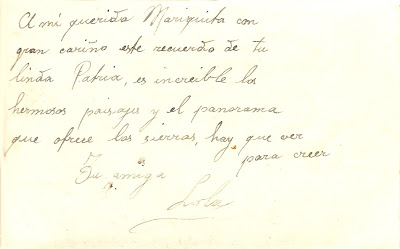 A mi querida Mariquita con
gran cariño este recuerdo de tu
linda Patria, es increible los
hermosos paisajes y el panorama
que ofrece las sierras, hay que ver
para creer
Tu amiga
Lola